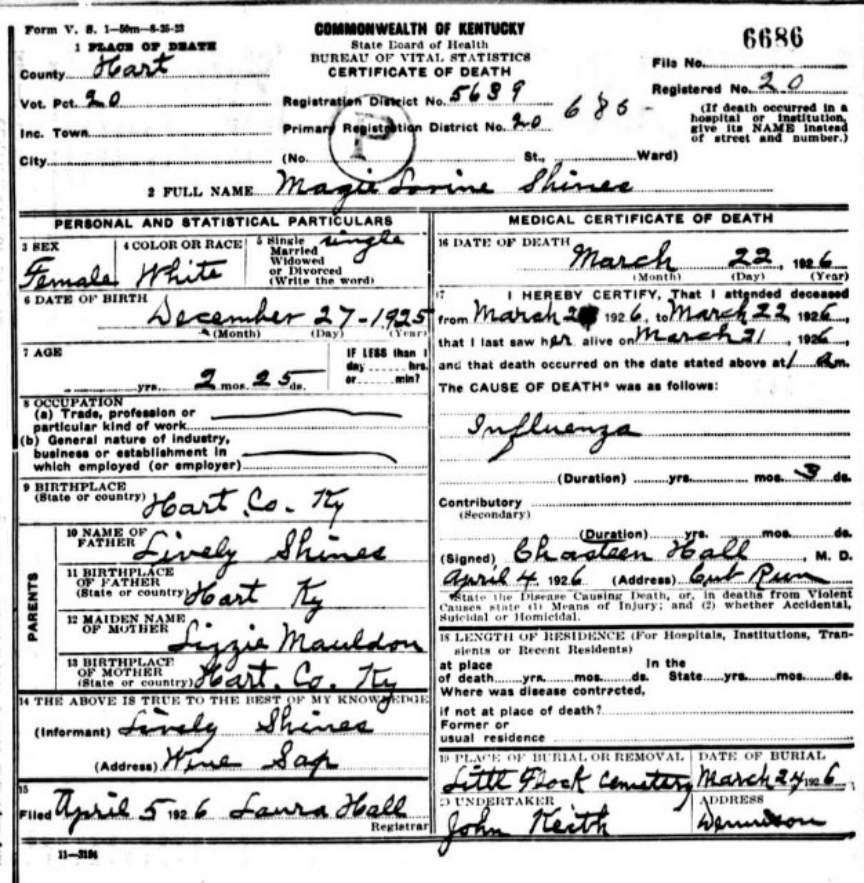 Form V. S. 1—50m—8-25-23
COMMONWEALTH OF KENTUCKY
State Board of Health
BUREAU OF VITAL STATISTICS
CERTIFICATE OF DEATH
6686
File No.
1 PLACE OF DEATH
County Hart
Registered No. 20
Vot. Pct. 20
Registration District No. 5639
686-
(If death occurred in a hospital or institution, give its NAME instead of street and number.)
Inc. Town
Primary Registration District No. 20
P
City
(No. St., Ward)
2 FULL NAME Magie Lorine Shines
PERSONAL AND STATISTICAL PARTICULARS
3 SEX
Female
4 COLOR OR RACE
White
5 Single
Married
Widowed
or Divorced
(Write the word)
single
6 DATE OF BIRTH
December 27-1925
(Month) (Day) (Year)
7 AGE
yrs. 2 mos. 25 ds.
IF LESS than 1
day hrs.
or min?
8 OCCUPATION
(a) Trade, profession or
particular kind of work
(b) General nature of industry,
business or establishment in
which employed (or employer)
9 BIRTHPLACE
(State or country) Hart Co. Ky
PARENTS
10 NAME OF
FATHER Lively Shines
11 BIRTHPLACE
OF FATHER
(State or country) Hart Ky
12 MAIDEN NAME
OF MOTHER Lizzie Mauldon
13 BIRTHPLACE
OF MOTHER
(State or country) Hart. Co. Ky
14 THE ABOVE IS TRUE TO THE BEST OF MY KNOWLEDGE
(Informant) Lively Shines
(Address) Wine Sap
15
Filed April 5 1926 Laura Hall
Registrar
11—3184
MEDICAL CERTIFICATE OF DEATH
16 DATE OF DEATH
March 22, 1926
(Month) (Day) (Year)
17 I HEREBY CERTIFY, That I attended deceased
from March 1926, to March 22, 1926
that I last saw her alive on March 21, 1926,
and that death occurred on the date stated above at 1 am.
The CAUSE OF DEATH* was as follows:
Influenza
(Duration) yrs. mos. 3 ds.
Contributory
(Secondary)
(Duration) yrs. mos. ds.
(Signed) Chasteen Hall, M. D.
April 4 1926 (Address) Cub Run
*State the Disease Causing Death, or, in deaths from Violent
Causes state (1) Means of Injury; and (2) whether Accidental,
Suicidal or Homicidal.
18 LENGTH OF RESIDENCE (For Hospitals, Institutions, Tran-
sients or Recent Residents)
at place In the
of death yrs. mos. ds. State yrs. mos. ds.
Where was disease contracted,
if not at place of death?
Former or
usual residence
19 PLACE OF BURIAL OR REMOVAL
Little Flock Cemetery
DATE OF BURIAL
March 24 1926
20 UNDERTAKER
John Keith
ADDRESS